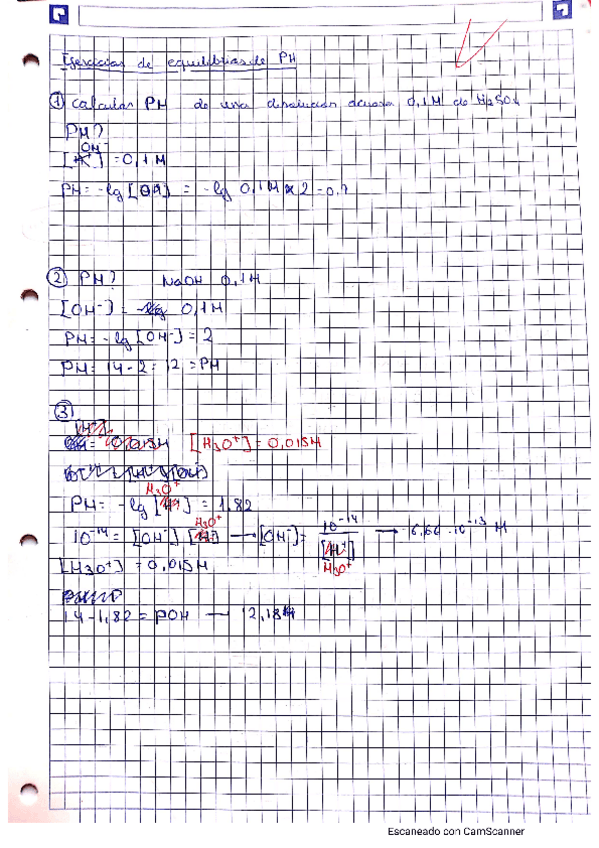 Ejercicios de equilibrios de PH
① Calcular PH de una disolución acuosa 0,1M de H2SO4
PH?
OH-
[H+] = 0,1M
PH = -lg [OH] = -lg 0,1M x 2 = 0,7
② PH? NaOH 0,1M
[OH-] = 0,1M
PH = -lg [OH-] = 2
PH = 14 - 2 = 12 = PH
③
[H+]
= 0,015M [H3O+] = 0,015M
H3O+
PH = -lg [H+] = 1,82
H3O+
10-14 = [OH-] [H+] → [OH-] = 10-14 / [H+] → 6,66·10-13 M
H3O+
[H3O+] = 0,015M
14 - 1,82 = POH — 12,18
Escaneado con CamScanner